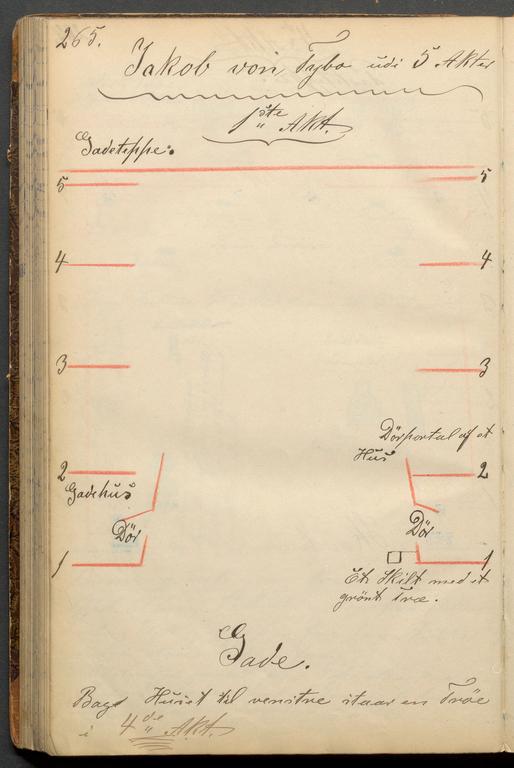 265.
Jakob von Tybo udi 5 Akter
1ste Akt.
Gadeteppe.
5 5
4 4
3 3
Dörportal af et
Hus
2 2
Gadehus
Dör Dör
1 1
Et Skilt med et
grönt Træ.
Gade.
Bag Huset til venstre staar en Tröe
i 4de Akt.